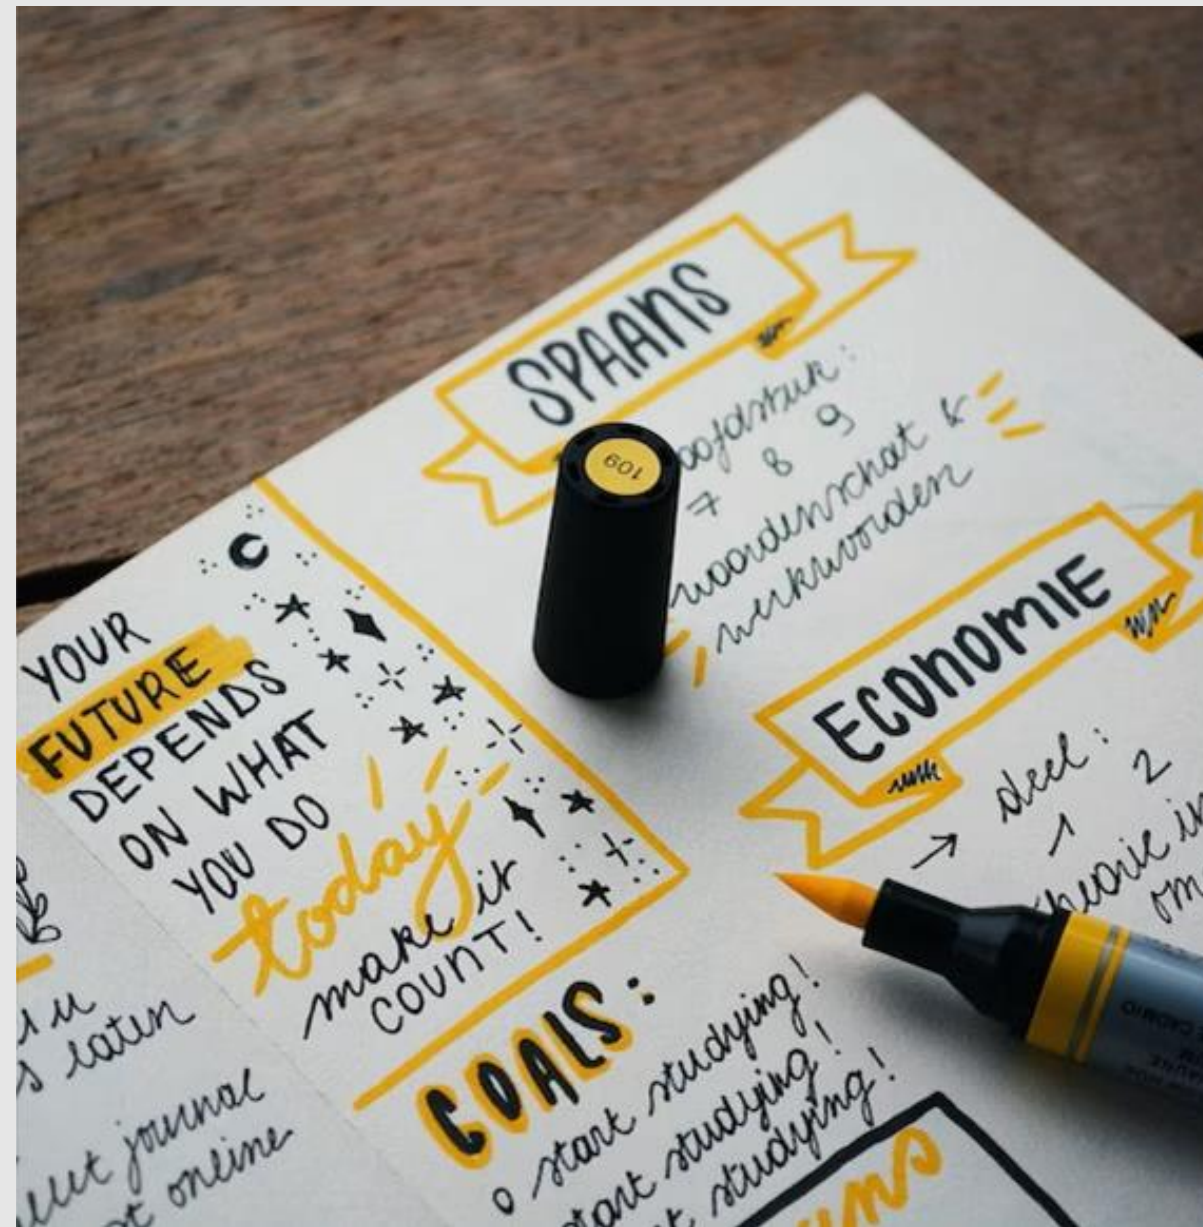 SPAANS
7 8 9
woordenschat &
werkwoorden
109
ECONOMIE
→ deel:
1 2
YOUR
FUTURE
DEPENDS
ON WHAT
YOU DO
today
make it
COUNT!
GOALS:
o start studying!
start studying!
studying!
laten
journal
online
CADMIO